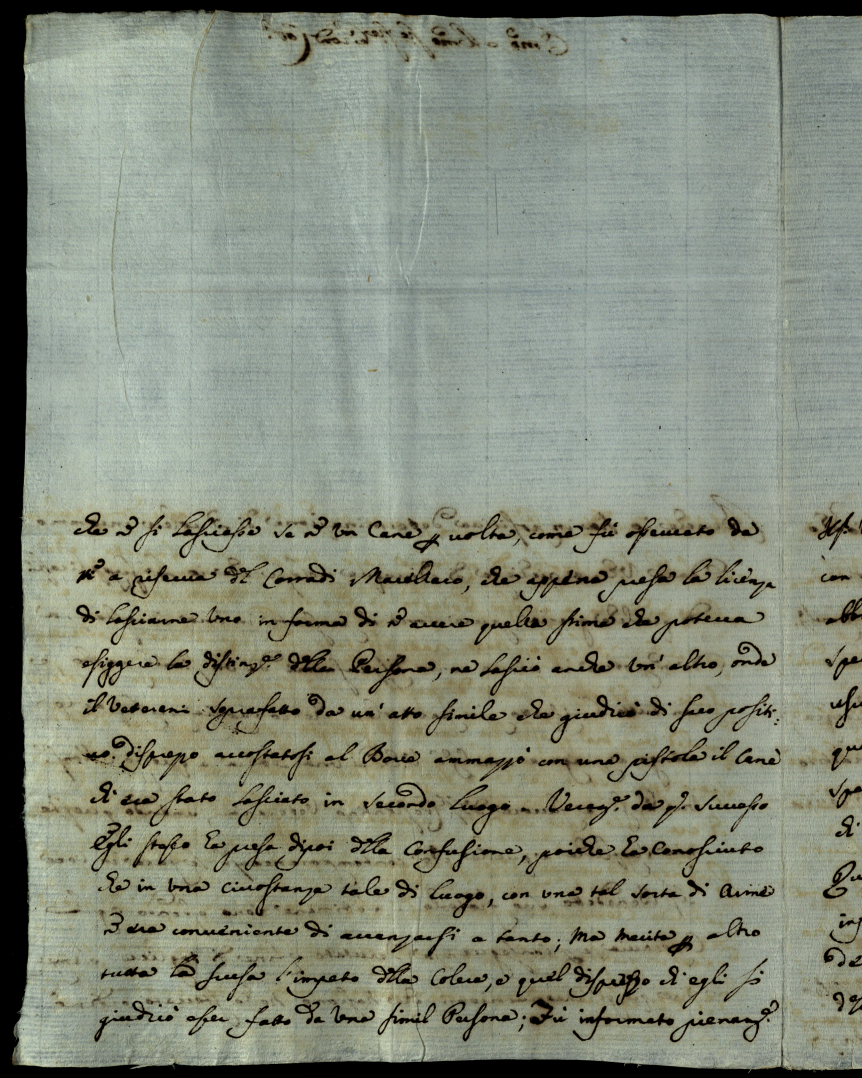 che nō si lasciasse se nō un Cane p volta, come fù osservato da
a riserva dl Corradi Macellaro, che appéna presa la licenza
di lasciarne uno in forma di nō avere quella stima che poteva
esiggere la disting.e della Persona, ne lasciò anche un' altro, onde
il Veterani sopraffatto da un' atto simile che giudicò di suo positi-
vo disprezzo accostatosi al Bove ammazzò con una pistola il Cane
ch era stato lasciato in secondo luogo. da q.o successo
Egli stesso ha presa dipoi dlla Confusione, poiche ha Conosciuto
che in una circostanza tale di luogo, con una tal sorta di Arme
nō era conveniente di avanzarsi a tanto; Ma merita p altro
tutta la scusa l'impeto dlla Colera, e quel disprezzo ch egli si
giudicò esser fatto da una simil Persona; Fù informato pienam.e